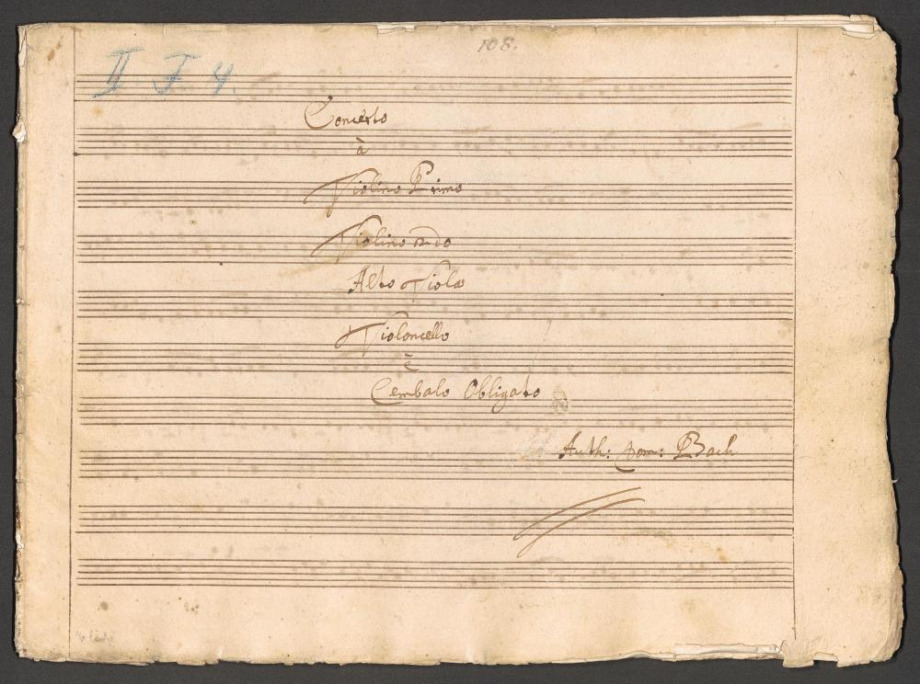 108.
II F 4.
Concerto
à
Violino Primo
Violino 2do
Alto Viola
Violoncello
è
Cembalo Obligato
Auth: Dom: Bach